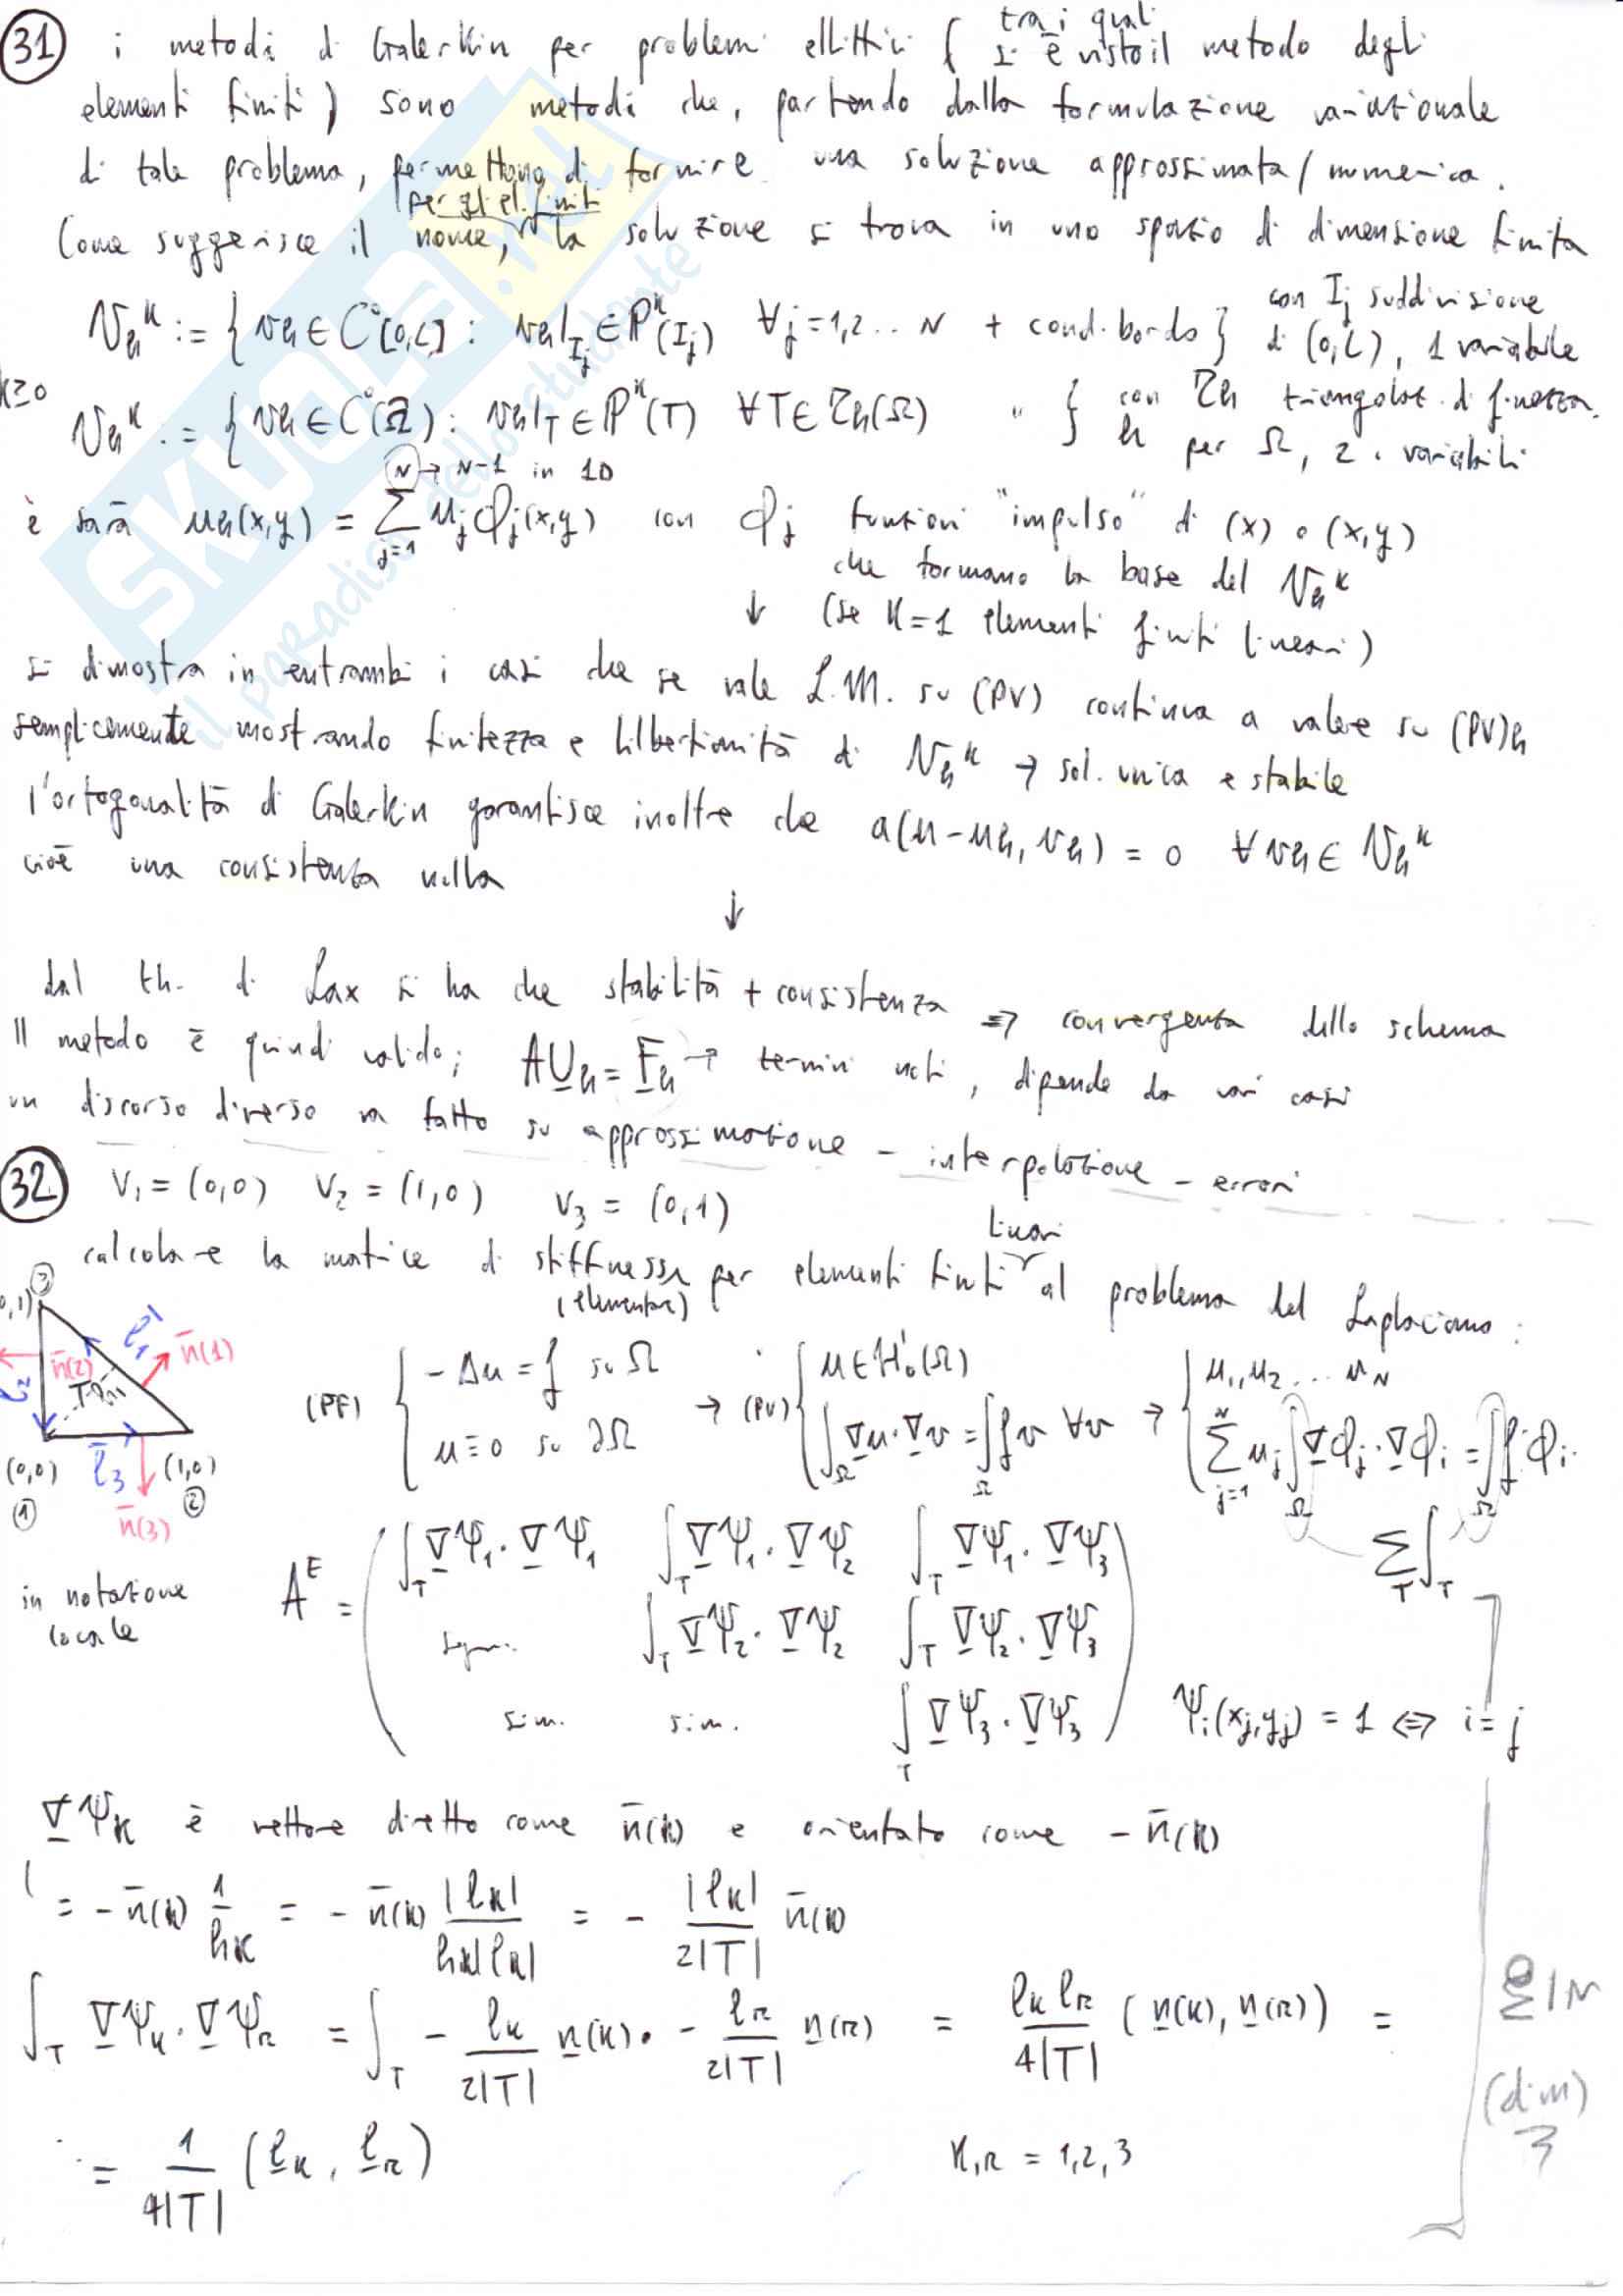 31 i metodi di Galerkin per problemi ellittici ( tra i quali si è visto il metodo degli
elementi finiti ) sono metodi che, partendo dalla formulazione variazionale
di tale problema, permettono di fornire una soluzione approssimata / numerica.
Come suggerisce il nome, per gli el. finiti la soluzione si trova in uno spazio di dimensione finita
V_h^k := { v_h ∈ C⁰[0,L] : v_h|_{I_j} ∈ P^k(I_j) ∀ j=1,2.. N + cond. bordo } con I_j suddivisione di (0,L), 1 variabile
k≥0
V_h^k := { v_h ∈ C⁰(Ω̄) : v_h|_T ∈ P^k(T) ∀T ∈ τ_h(Ω) " } con τ_h triangolaz. di finezza h per Ω, 2 variabili
N → N-1 in 1D
e sarà u_h(x,y) = Σ_{j=1} u_j φ_j(x,y) con φ_j funzioni "impulso" di (x) o (x,y)
che formano la base del V_h^k
↓ (se k=1 elementi finiti lineari)
si dimostra in entrambi i casi che se vale L.M. su (PV) continua a valere su (PV)_h
semplicemente mostrando finitezza e hilbertianità di V_h^k → sol. unica e stabile
l'ortogonalità di Galerkin garantisce inoltre che a(u-u_h, v_h) = 0 ∀ v_h ∈ V_h^k
cioè una consistenza nella
↓
dal th. di Lax si ha che stabilità + consistenza ⇒ convergenza dello schema
Il metodo è quindi valido; A U_h = F_h → termini noti, dipende da vari casi
un discorso diverso va fatto su approssimazione - interpolazione - errori
32 V₁ = (0,0) V₂ = (1,0) V₃ = (0,1)
calcolare la matrice di stiffness (elementare) per elementi finiti lineari al problema del Laplaciano :
③
0,1)
l̄₁ n̄(1)
n̄(2)
l₂
(0,0) l̄₃ (1,0)
① ②
n̄(3)
(PF) { -Δu = f su Ω
u ≡ 0 su ∂Ω
→ (PV) { u ∈ H₀¹(Ω)
∫_Ω ∇u · ∇v = ∫_Ω f v ∀v
→ { u₁, u₂ ... u_N
Σ_{j=1}^N u_j ∫_Ω ∇φ_j · ∇φ_i = ∫_Ω f φ_i
Σ_T ∫_T
in notazione locale
A^E = ( ∫_T ∇ψ₁ · ∇ψ₁ ∫_T ∇ψ₁ · ∇ψ₂ ∫_T ∇ψ₁ · ∇ψ₃
∫_T ∇ψ₂ · ∇ψ₂ ∫_T ∇ψ₂ · ∇ψ₃
sim. sim. ∫_T ∇ψ₃ · ∇ψ₃ ) ψ_i(x_j,y_j) = 1 ⇔ i = j
∇ψ_k è vettore diretto come n̄(k) e orientato come - n̄(k)
= - n̄(k) 1/h_k = - n̄(k) |l_k| / h_k|l_k| = - |l_k| / 2|T| n̄(k)
∫_T ∇ψ_k · ∇ψ_r = ∫_T - l_k / 2|T| n(k) · - l_r / 2|T| n(r) = l_k l_r / 4|T| ( n(k), n(r) ) =
= 1 / 4|T| ( l_k , l_r ) k,r = 1,2,3
(dim)
SKUOLA.net
il paradiso dello studente